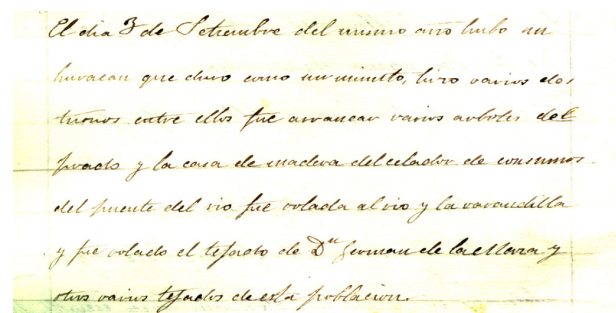 El dia 3 de Setiembre del mismo año hubo un
huracan que duro como un minuto, hizo varios des
trosos entre ellos fue arrancar varios arboles del
prado y la casa de madera del celador de consumos
del puente del rio fue volada al rio y la varandilla
y fue volado el tejado de Dn German de la Mara y
otros varios tejados de esta poblacion.